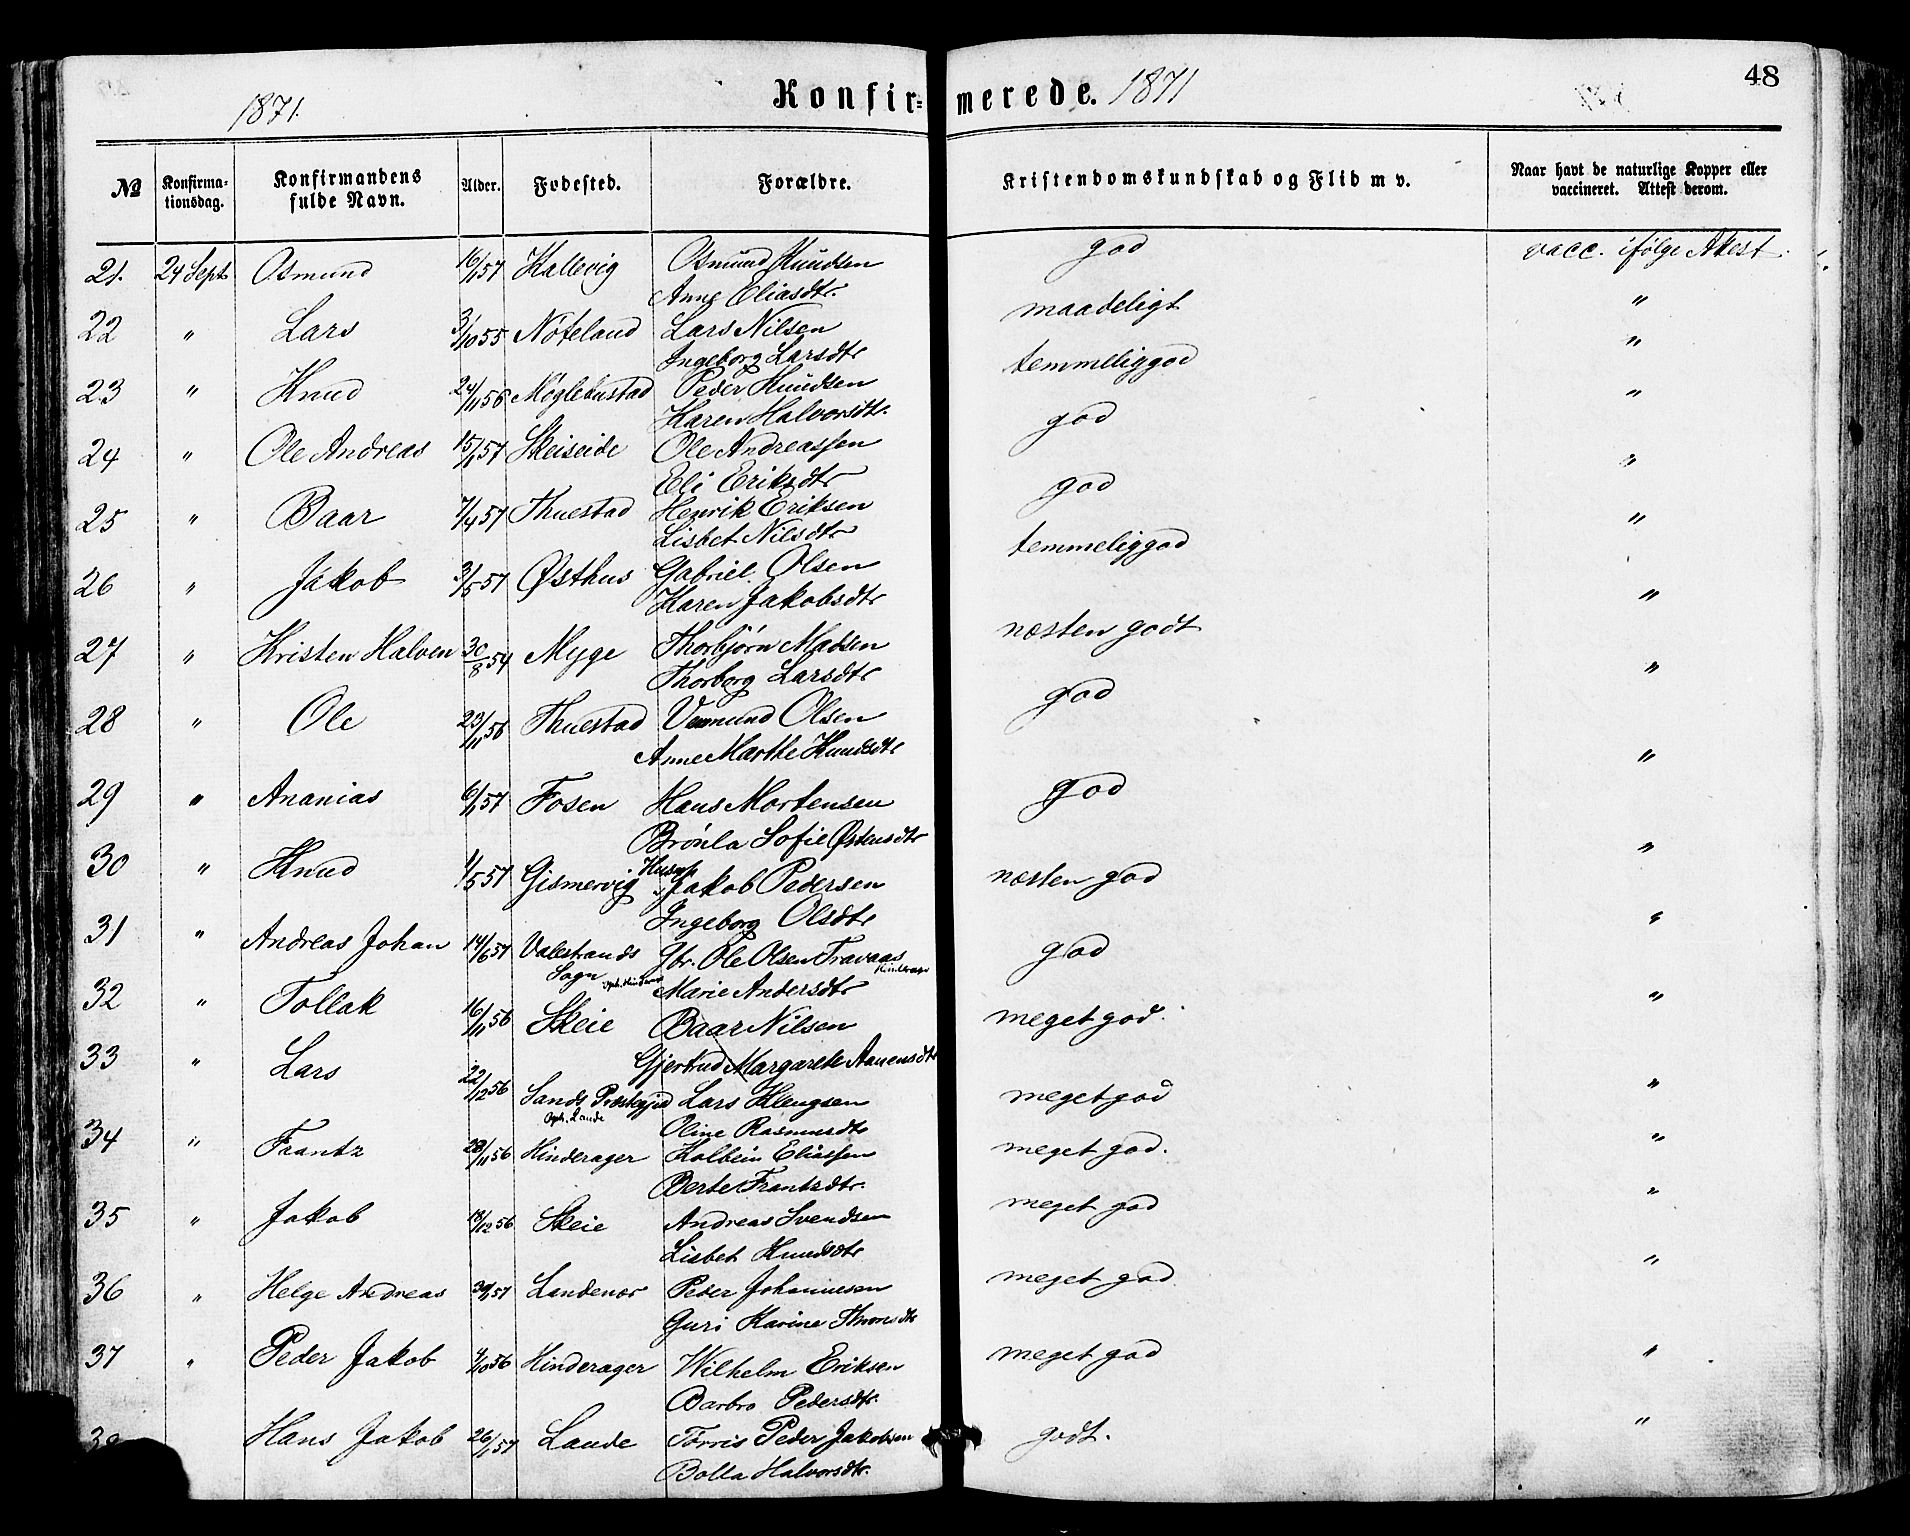 48
1871.
Konfirmerede. 1871
№ Konfirmationsdag. Konfirmandens fulde Navn. Alder. Fødested. Forældre. Kristendomskundskab og Flid m v. Naar havt de naturlige Kopper eller vaccineret. Attest derom.
21. 24 Sept Osmund 16/1 57 Hallevig Osmund Knudsen god vacc. ifølge Attest.
Anne Eliasdtr.
22 " Lars 3/10 55 Nøteland Lars Nilsen maadeligt "
Ingeborg Larsdtr
23 " Knud 24/11 56 Møglebustad Peder Knudsen temmeliggod "
Karen Halvorsdtr.
24 " Ole Andreas 15/1 57 Skeiseide Ole Andreassen god "
Eli Eriksdtr
25 " Baar 7/4 57 Thuestad Henrik Eriksen god "
Lisbet Nilsdtr
26 " Jakob 3/5 57 Østhus Gabriel Olsen temmeliggod "
Karen Jakobsdtr
27 " Kristen Halven 30/8 54 Myge Thorbjørn Madsen næsten godt "
Thorborg Larsdtr
28 " Ole 23/11 56 Thuestad Vermund Olsen god "
Anne Marthe Knudsdtr
29 " Ananias 6/1 57 Fosen Hans Mortensen god "
Brønla Sofie Østensdtr
30 " Knud 1/5 57 Gismervig Husm. Jakob Pedersen næsten god "
Ingeborg Olsdtr
31 " Andreas Johan 14/6 57 Valestrands Sogn Gbr. Ole Olsen Travaas god "
Marie Andersdtr
32 " Tollak 16/11 56 Skeie Baar Nilsen meget god. "
Gjertrud Margarete Aanensdtr
33 " Lars 22/12 56 Sands Præstegjed Oph. Lande Lars Klengsen meget god "
Oline Rasmusdtr
34 " Frantz 28/11 56 Hinderager Kolbein Eliassen meget god. "
Berte Frantzdtr.
35 " Jakob 18/12 56 Skeie Andreas Svendsen meget god "
Lisbet Knudsdtr
36 " Helge Andreas 30/1 57 Landenor Peder Johannesen meget god "
Guri Karine Thoresdtr
37 " Peder Jakob 4/10 56 Hinderager Wilhelm Eriksen meget god "
Barbro Pedersdtr.
38 Hans Jakob 26/1 57 Lande Torris Peder Jakobsen godt. "
Bolla Halvorsdtr.